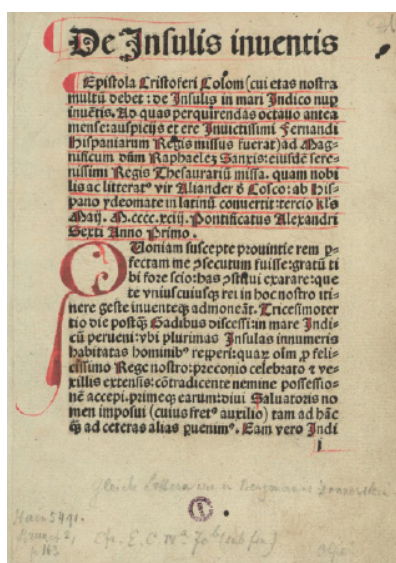 De Insulis inuentis
Epistola Cristoferi Colom (cui etas nostra
multū debet : de Insulis in mari Indico nup̄
inuētis. Ad quas perquirendas octauo antea
mense: auspicijs et ere Inuictissimi Fernandi
Hispaniarum Regis missus fuerat) ad Mag-
nificum dn̄m Raphaelez Sanxis: eiusdē sere-
nissimi Regis Thesaurariū missa. quam nobi
lis ac litterat⁹ vir Aliander d̄ Cosco: ab His-
pano ydeomate in latinū conuertit: tercio kl̄s
Maij. M.cccc.xciij. Pontificatus Alexandri
Sexti Anno Primo.
Quoniam suscepte prouintie rem p̱-
fectam me ꝯsecutum fuisse: gratū ti
bi fore scio: has ꝯstitui exarare: que
te vniuscuiusqꝫ rei in hoc nostro iti-
nere geste inuenteqꝫ admoneāt. Tricesimoter
tio die postq̄ Gadibus discessi: in mare Indi-
cū perueni: vbi plurimas Insulas innumeris
habitatas hominib⁹ reperi: quaꝝ oīm ꝓ feli-
cissimo Rege nostro: preconio celebrato ⁊ ve-
xillis extensis: cōtradicente nemine possessio-
nē accepi. primeqꝫ earum: diui Saluatoris no
men imposui (cuius fret⁹ auxilio) tam ad hāc
q̄ ad ceteras alias ꝑuenim⁹. Eam vero Indi
i